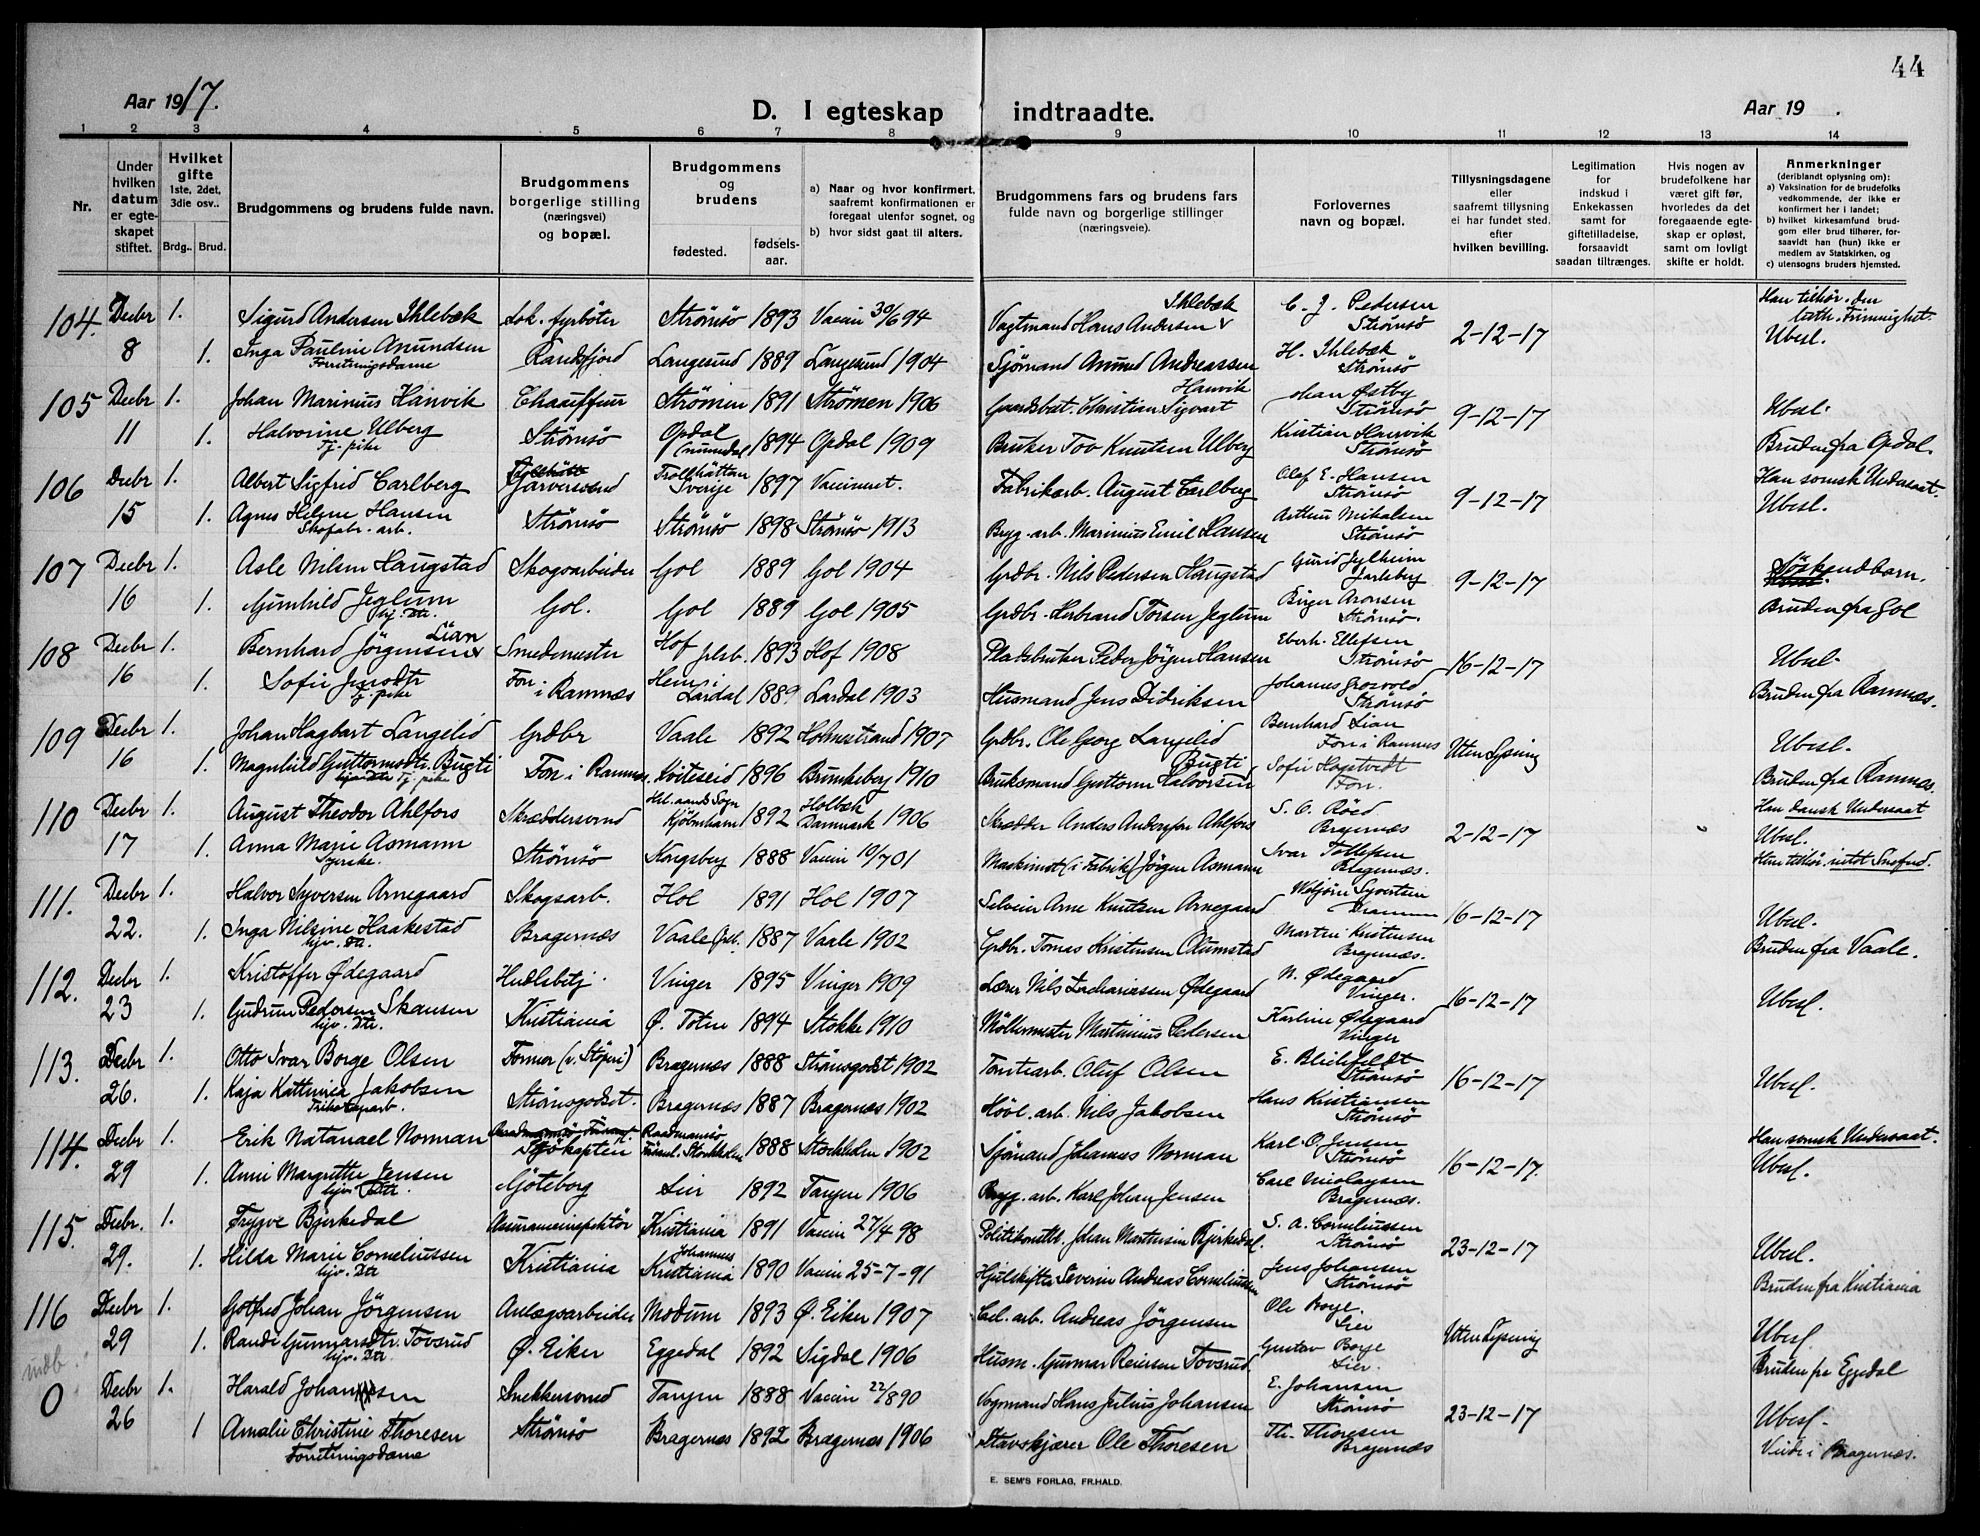 44
Aar 1917.
D. I egteskap indtraadte.
Aar 19 .
1 2 3 4 5 6 7 8 9 10 11 12 13 14
Nr.
Under hvilken datum er egteskapet stiftet.
Hvilket gifte 1ste, 2det, 3die osv..
Brdg.. Brud.
Brudgommens og brudens fulde navn.
Brudgommens borgerlige stilling (næringsvei) og bopæl.
Brudgommens og brudens
fødested.
fødselsaar.
a) Naar og hvor konfirmert, saafremt konfirmationen er foregaat utenfor sognet, og
b) hvor sidst gaat til alters.
Brudgommens fars og brudens fars fulde navn og borgerlige stillinger (næringsveie).
Forlovernes navn og bopæl.
Tillysningsdagene eller saafremt tillysning ei har fundet sted, efter hvilken bevilling.
Legitimation for indskud i Enkekassen samt for giftetilladelse, forsaavidt saadan tiltrænges.
Hvis nogen av brudefolkene har været gift før, hvorledes da det foregaaende egteskap er opløst, samt om lovligt skifte er holdt.
Anmerkninger (deriblandt oplysning om):
a) Vaksination for de brudefolks vedkommende, der ikke er konfirmert her i landet;
b) hvilket kirkesamfund brudgom eller brud tilhører, forsaavidt han (hun) ikke er medlem av Statskirken, og
c) utensogns bruders hjemsted.
104 Decbr 1. Sigurd Andersen Ihlebæk Lok. fyrbøter Strømsö 1893 Vaccin 30/6 94 Vagtmand Hans Andersen Ihlebæk C. J. Pedersen Strømsö 2-12-17 Han tilhør. den luth. Frimenighet.
8 1. Inga Pauline Anundsen Forretningsdame Randsfjord Langesund 1889 Langesund 1904 Sjømand Anund Andreassen H. Ihlebæk Strømsö Ubesl.
105 Decbr 1. Johan Marinius Hanvik Chauffeur Strømm 1891 Strømen 1906 Gaardsbst. Christian Sigvart Hanvik Johan Østby Strømsö 9-12-17 Ubesl.
11 1. Halvorine Ulberg Tj. pike Strømsö Opdal Numedal 1894 Opdal 1909 Bruker Tov Knutsen Ulberg Kristian Hanvik Strømsö Bruden fra Opdal.
106 Decbr 1. Albert Sigfrid Carlberg Garversvend Trollhättan Sverije 1897 Vaccineret. Fabrikarb. August Carlberg Olaf E. Hansen Strømsö 9-12-17 Han svensk Undersaat.
15 1. Agnes Helene Hansen Skofabr. arb. Strømsö Strømsö 1898 Strømsö 1913 Bryg. arb. Marinius Emil Hansen Arthur Mikalsen Strømsö Ubesl.
107 Decbr 1. Asle Nilsen Haugstad Skogsarbeider Gol 1889 Gol 1904 Grdbr. Nils Pedersen Haugstad Gurid Jylheim Jarlsberg 9-12-17 Söskendbarn.
16 1. Gunhild Jeglum hj. Dtr. Gol. Gol 1889 Gol 1905 Grdbr. Herbrand Torsen Jeglum Birger Aronsen Strømsö. Bruden fra Gol
108 Decbr 1. Bernhard Jörgensen Lian Smedemester Hof Jrlsb. 1893 Hof 1908 Pladsbruker Peder Jörgen Hansen Eberh. Ellefsen Strømsö 16-12-17 Ubesl.
16 1. Sofie Jensdtr Tj. pike Fon i Ramnæs Hem i Lardal 1889 Lardal 1903 Husmand Jens Didriksen Johannes Grosvold Strømsö Bruden fra Ramnæs.
109 Decbr 1. Johan Hagbart Langelid Grdbr Vaale 1892 Holmestrand 1907 Grdbr. Ole Georg Langelid Bernhard Lian Fon i Ramnæs Uten Lysning Ubesl.
16 1. Magnhild Guttormsdtr. Bugti Tj. pike Fon i Ramnæs Kviteseid 1896 Brunkeberg 1910 Bruksmand Guttorm Halvorsen Bugti Sofie Hogtvedt Fon. Bruden fra Ramnæs.
110 Decbr 1. August Theodor Ahlfors Skræddersvend Hel. aands Sogn Kjöbenhavn 1892 Holbæk Danmark 1906 Skrædder Anders Anderssen Ahlfors S. O. Röed Bragernæs 2-12-17 Han dansk Undersaat
17 1. Anna Marie Asmann Syerske. Strømsö Kongsberg 1888 Vaccin 10/7 01 Maskinist (i Fabrik) Jörgen Asmann Ivar Tollefsen Bragernæs. Ubesl. Hun tilhør. intet Smfund.
111. Decbr 1. Halvor Syversen Arnegaard Skogsarb. Hol 1891 Hol 1907 Selveier Arne Knutsen Arnegaard Syvertsen Drammen 16-12-17 Ubesl.
22. 1. Inga Nilsine Haakestad hjv. Dtr. Bragernæs Vaale 1887 Vaale 1902 Grdbr. Tomas Kristensen Martin Kristensen Bragernæs. Bruden fra Vaale.
112. Decbr 1. Kristoffer Ødegaard Vinger 1895 Vinger 1909 Lærer Nils Zachariassen Ødegaard N. Ødegaard Vinger. 16-12-17 Ubesl.
23 1. Gudrun Pedersen Skansen hjv. Dtr. Kristiania Ø. Toten 1894 Stokke 1910 Möllemester Martinius Pedersen Karline Ødegaard Vinger
113. Decbr 1. Otto Ivar Borge Olsen Former (v. Stöperi) Bragernæs 1888 Strömsgodset 1902 Tomtearb. Oluf Olsen E. Blichfeldt Strømsö 16-12-17 Ubesl.
26. 1. Kaja Kathinka Jakobsen Trikotagearb. Strömsgodset. Bragernæs 1887 Bragernæs 1902 Hövl. arb. Nils Jakobsen Hans Kristiansen Strømsö
114. Decbr 1. Erik Natanael Norman Sjökapten Raadmansö Stockholm 1888 Stockholm 1902 Sjömand Johannes Norman Karl O. Jensen Strømsö 16-12-17. Han svensk Undersaat.
29 1. Anni Margrethe Jensen hjv. Dtr. Göteborg Lier 1892 Tangen 1906 Bryg. arb. Karl Johan Jensen Carl Nicolaysen Bragernæs. Ubesl.
115. Decbr. 1. Trygve Bjerkedal Assuranceinspektör Kristiania 1891 Vaccin 27/4 98 Politikonstb. Johan Martinsin Bjerkedal. S. A. Corneliussen Strømsö 23-12-17 Ubesl.
29. 1. Hilda Marie Corneliussen hjv. Dtr Kristiania Johannes Kristiania 1890 Vaccin 25-7-91 Hjulskifter Severin Andreas Corneliussen Jens Johansen Strømsö Bruden fra Kristiania
116 Decbr 1. Gotfred Johan Jörgensen Anlægsarbeider Modum 1893 Ø. Eiker 1907 Cel. arb. Andreas Jörgensen Ole Borge. Lier Uten Lysning Ubesl.
29 1. Randi Gunnarsdtr. Tovsrud hjv. Dtr. Ø. Eiker Eggedal 1892 Sigdal 1906 Husm. Gunnar Reiersen Tovsrud Gustav Borge Lier. Bruden fra Eggedal
indb.
0 Decbr 1. Harald Johansen Snekkersvend Tangen 1888 Vaccin 22/8 90 Vognmand Hans Julius Johansen E. Johansen Strømsö 23-12-17 Ubesl.
26 1 Amalie Christine Thoresen Forretningsdame Strømsö Bragernæs 1892 Bragernæs 1906 Stavskjærer Ole Thoresen Th. Thoresen Bragernæs Viede i Bragernæs.
E. SEM'S FORLAG, FR.HALD.